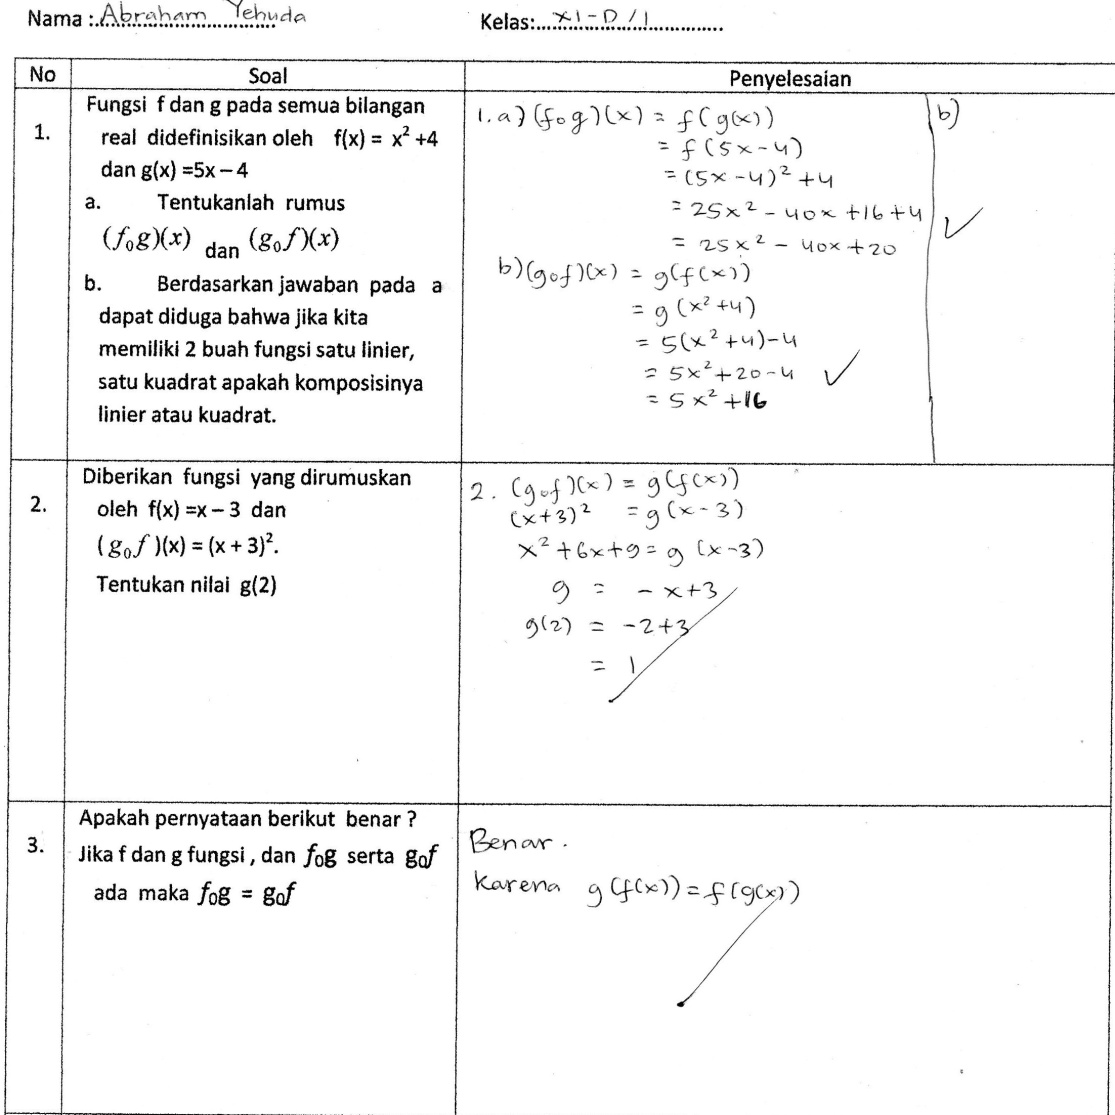 Nama : Abraham Yehuda
Kelas: XI-D/1
No Soal Penyelesaian
1.
Fungsi f dan g pada semua bilangan
real didefinisikan oleh f(x) = x² +4
dan g(x) =5x – 4
a. Tentukanlah rumus
(f₀g)(x) dan (g₀f)(x)
b. Berdasarkan jawaban pada a
dapat diduga bahwa jika kita
memiliki 2 buah fungsi satu linier,
satu kuadrat apakah komposisinya
linier atau kuadrat.
1. a) (fog)(x) = f(g(x))
= f(5x-4)
= (5x-4)² +4
= 25x² - 40x +16+4
= 25x² - 40x+20
b)(gof)(x) = g(f(x))
= g(x²+4)
= 5(x²+4)-4
= 5x²+20-4
= 5x²+16
b)
2.
Diberikan fungsi yang dirumuskan
oleh f(x) =x – 3 dan
(g₀f )(x) = (x + 3)².
Tentukan nilai g(2)
2. (gof)(x) = g(f(x))
(x+3)² = g(x-3)
x²+6x+9 = g (x-3)
g = -x+3
g(2) = -2+3
= 1
3.
Apakah pernyataan berikut benar ?
Jika f dan g fungsi , dan f₀g serta g₀f
ada maka f₀g = g₀f
Benar.
Karena g(f(x)) = f(g(x))